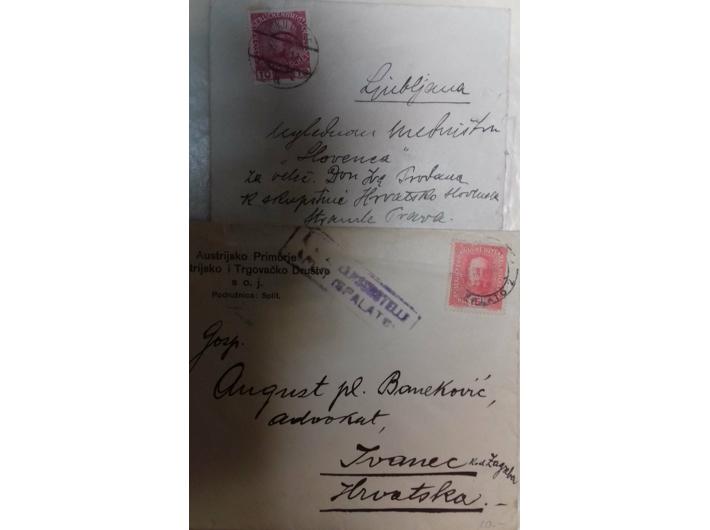 10
Ljubljana
uglednom uredništvu
"Slovenca"
za veleč. Don Ivu Prodana
k skupštine Hrvatsko Slovenske
Stranke Prava.
Austrijsko Primorje
trijsko i Trgovačko Društvo
s o. j.
Podružnica: Split.
SPALATO
SPALATO 2
Gosp.
August pl. Baneković,
advokat,
Ivanec kod Zagreba
Hrvatska.
10.-